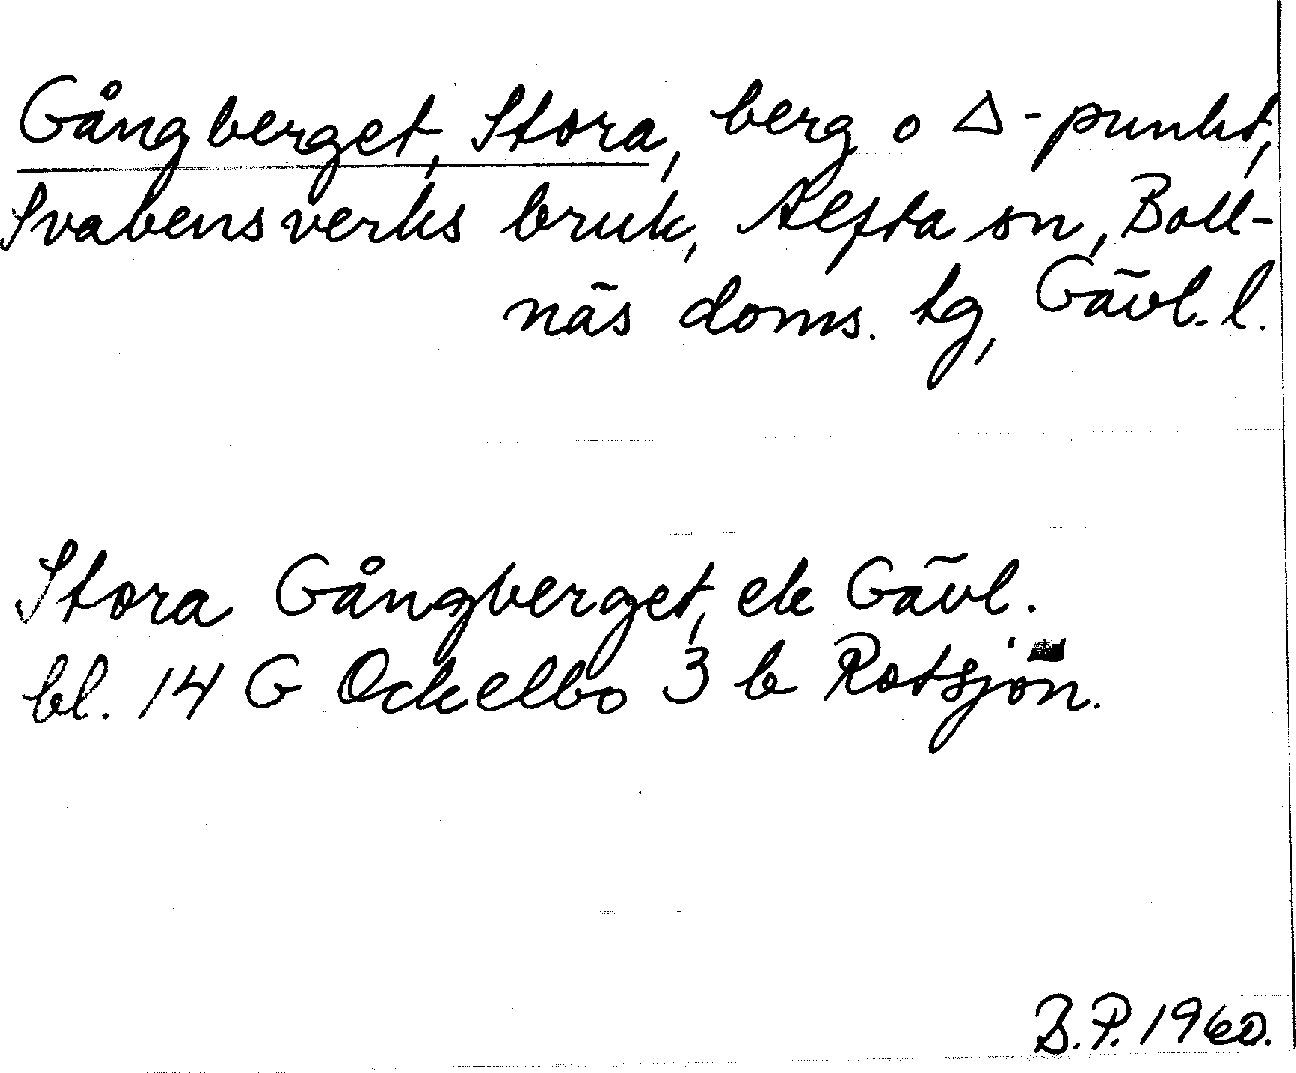 Gångberget, Stora, berg o △-punkt,
Svabensverks bruk, Alfta sn, Boll-
näs doms. tg, Gävl. l.
Stora Gångberget, ek Gävl.
bl. 14 G Ockelbo 3 b Rotsjön.
B.P. 1960.